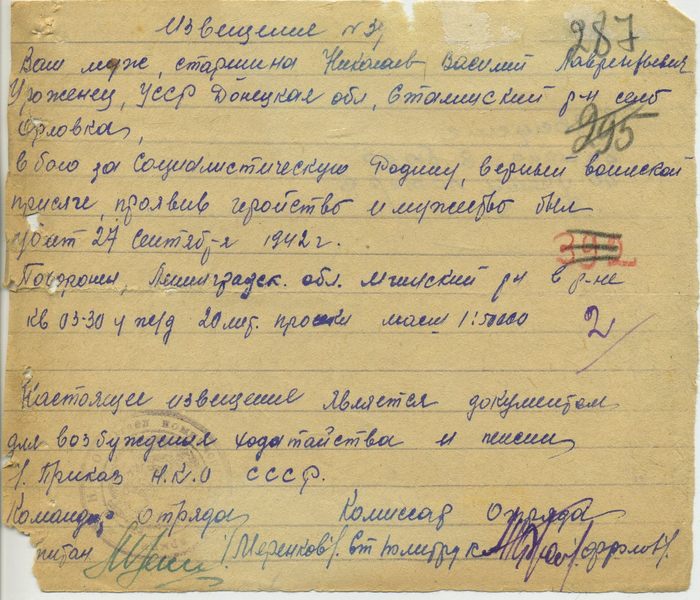 Извещение №
287
Ваш муж, старшина Николаев Василий Лаврентьевич
Уроженец, УССР Донецкая обл, Сталинский р-н село
Орловка,
295
в бою за Социалистическую Родину, верный воинской
присяге, проявив геройство и мужество был
убит 27 сентября 1942 г.
392
Похоронен, Ленинградск. обл. Мгинский р-н в р-не
кв 03-30 у ж/д 20 мт. просеки масш 1:50000
2
Настоящее извещение является документом
для возбуждения ходатайства и пенсии
/. Приказ Н.К.О СССР.
Командир отряда Комиссар отряда
питан /Меренков/. Ст политрук /Фролов/.